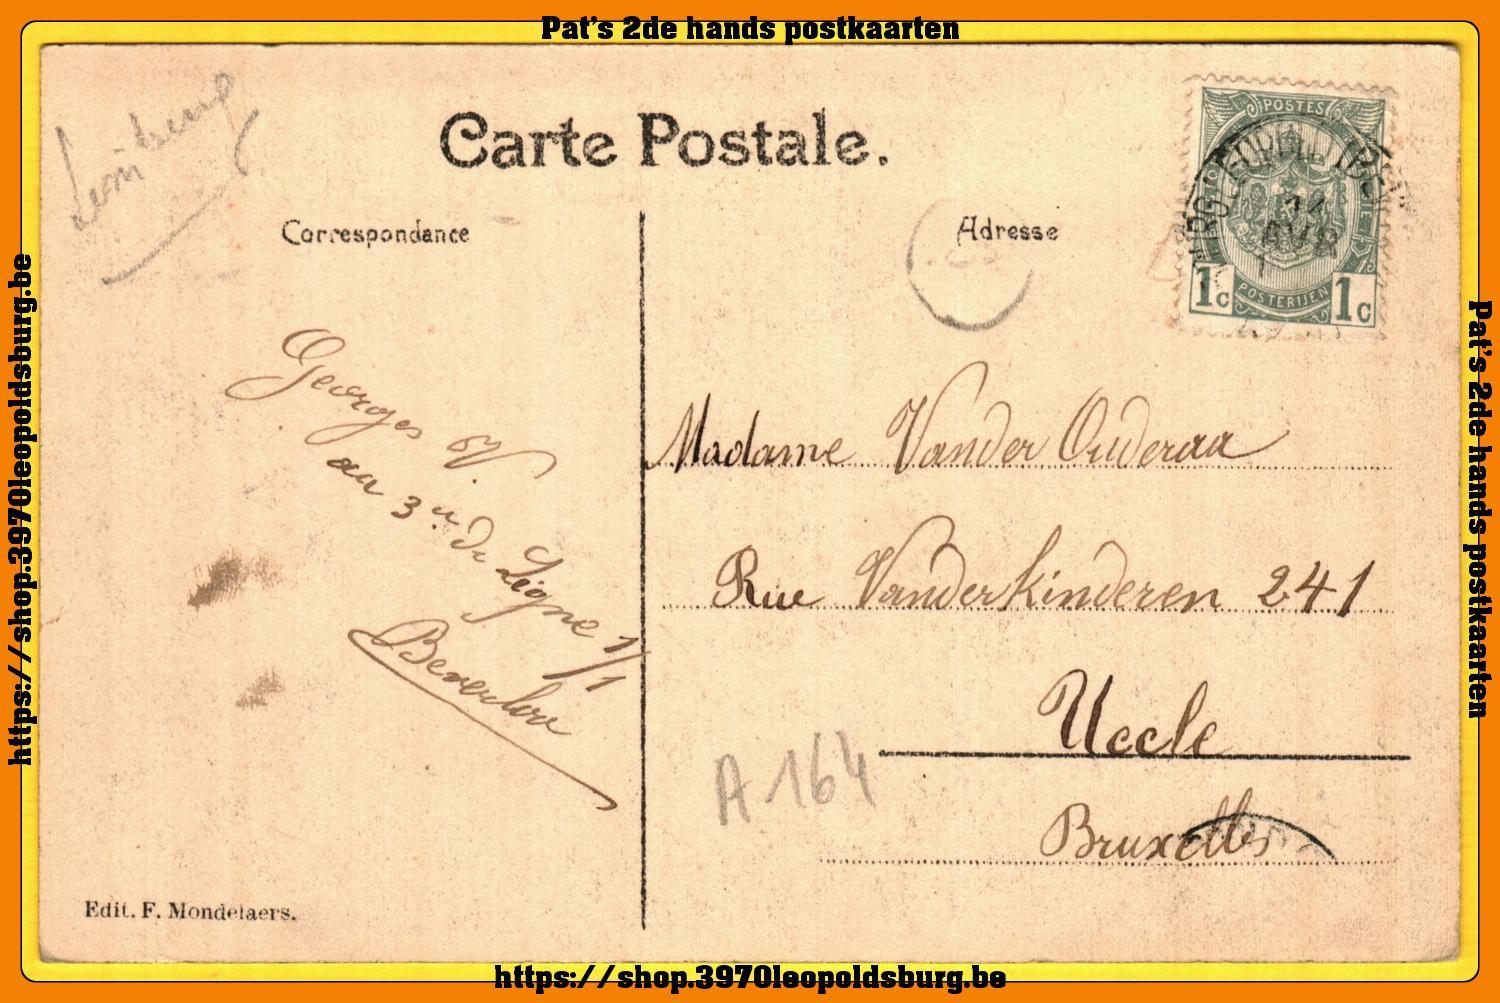 Pat's 2de hands postkaarten
Carte Postale.
Correspondance
Adresse
POSTES
1c POSTERIJEN 1c
AVR
Georges V.
au 3e de Ligne 1/1
Beverloo
Madame Vander Ouderaa
Rue Vanderkinderen 241
Uccle
Bruxelles
A 164
Edit. F. Mondelaers.
https://shop.3970leopoldsburg.be
https://shop.3970leopoldsburg.be
Pat's 2de hands postkaarten